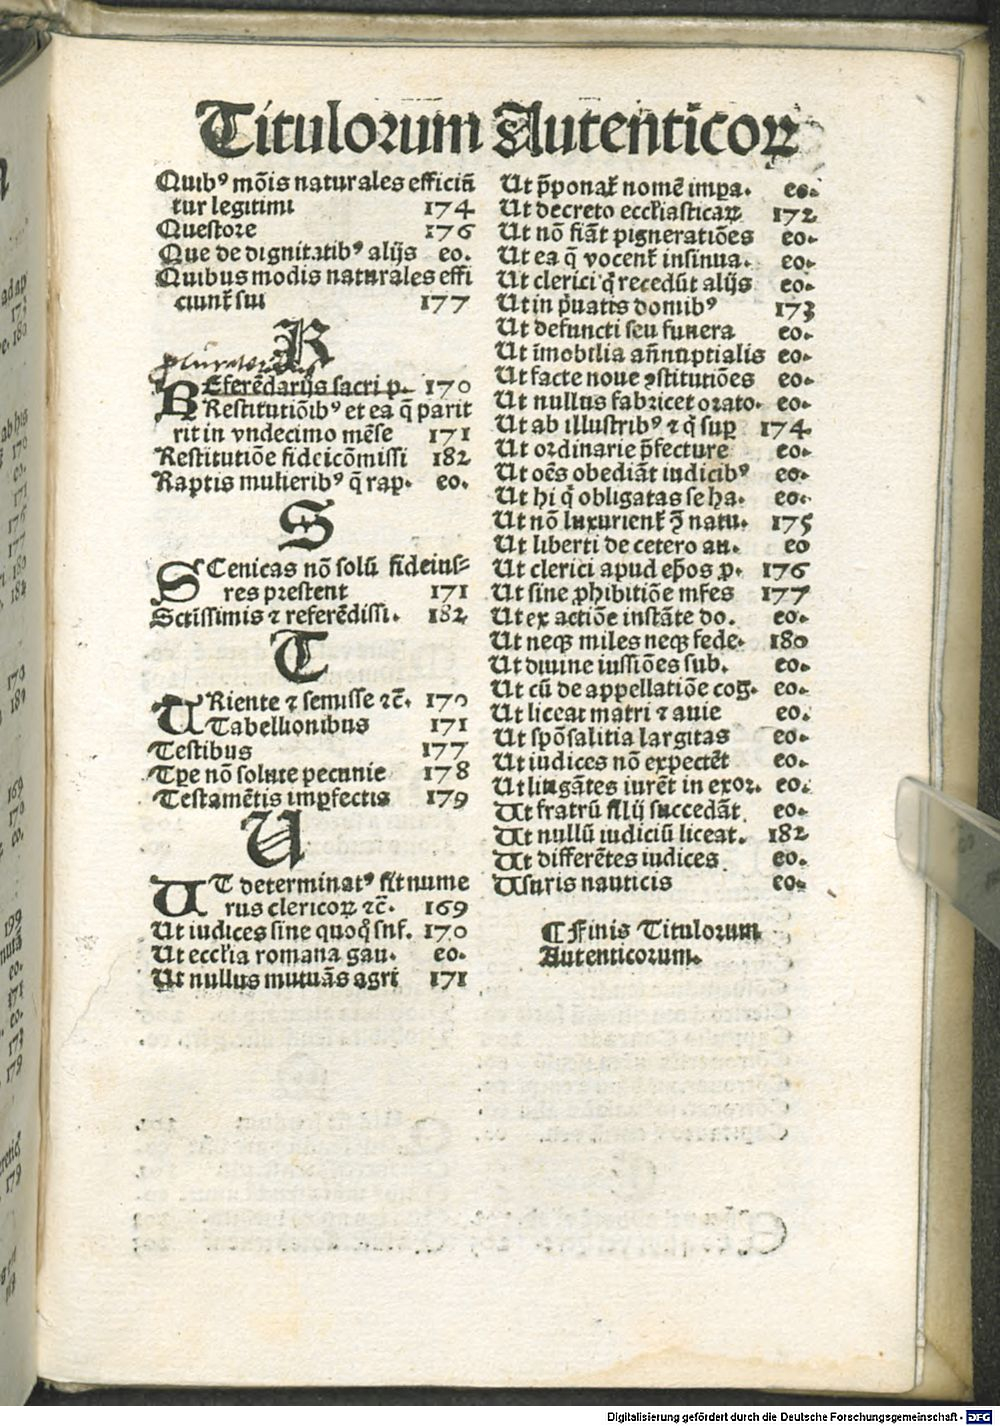 Titulorum Autenticoꝝ
Quibꝰ mõis naturales efficiñ
tur legitimi 174
Questore 176
Que de dignitatibꝰ alijs eo.
Quibus modis naturales effi
ciunt̃ sui 177
R
REferẽdarijs sacri p. 170
Restitutiõibꝰ et ea q̃ parit
rit in vndecimo mẽse 171
Restitutiõe fideicõmissi 182
Raptis mulieribꝰ q̃ rap. eo.
S
SCenicas nõ solũ fideius⸗
res prestent 171
Sctissimis ⁊ referẽdissi. 182
T
TRiente ⁊ semisse ⁊c̃. 170
Tabellionibus 171
Testibus 177
Tpe nõ solute pecunie 178
Testamẽtis imꝑfectis 179
U
UT determinatꝰ sit nume
rus clericoꝝ ⁊c̃. 169
Ut iudices sine quoq̃ suf. 170
Ut eccl̃ia romana gau. eo.
Ut nullus mutuãs agri 171
Ut p̃ponat̃ nomẽ imꝑa. eo.
Ut decreto eccl̃iasticaꝝ 172
Ut nõ fiãt pigneratiões eo.
Ut ea q̃ vocent̃ insinua. eo.
Ut clerici q̃ recedũt alijs eo.
Ut in p̃uatis domibꝰ 173
Ut defuncti seu funera eo.
Ut ĩmobilia añnuptialis eo.
Ut facte noue ꝯstitutiões eo.
Ut nullus fabricet orato. eo.
Ut ab illustribꝰ ⁊ q̃ suꝑ 174
Ut ordinarie p̃fecture eo.
Ut oẽs obediãt iudicibꝰ eo.
Ut hi q̃ obligatas se ha. eo.
Ut nõ luxurient̃ ꝯ̃ natu. 175
Ut liberti de cetero an. eo
Ut clerici apud ep̃os ꝓ. 176
Ut sine ꝓhibitiõe mr̃es 177
Ut ex actiõe instãte do. eo.
Ut neqꝫ miles neqꝫ fede. 180
Ut diuine iussiões sub. eo.
Ut cũ de appellatiõe cog̃. eo.
Ut liceat matri ⁊ auie eo.
Ut spõsalitia largitas eo.
Ut iudices nõ expectẽt eo.
Ut litigãtes iurẽt in exor. eo.
Ut fratrũ filij succedãt eo.
Ut nullũ iudiciũ liceat. 182
Ut differẽtes iudices eo.
Usuris nauticis eo.
¶ Finis Titulorum
Autenticorum.
Digitalisierung gefördert durch die Deutsche Forschungsgemeinschaft - DFG